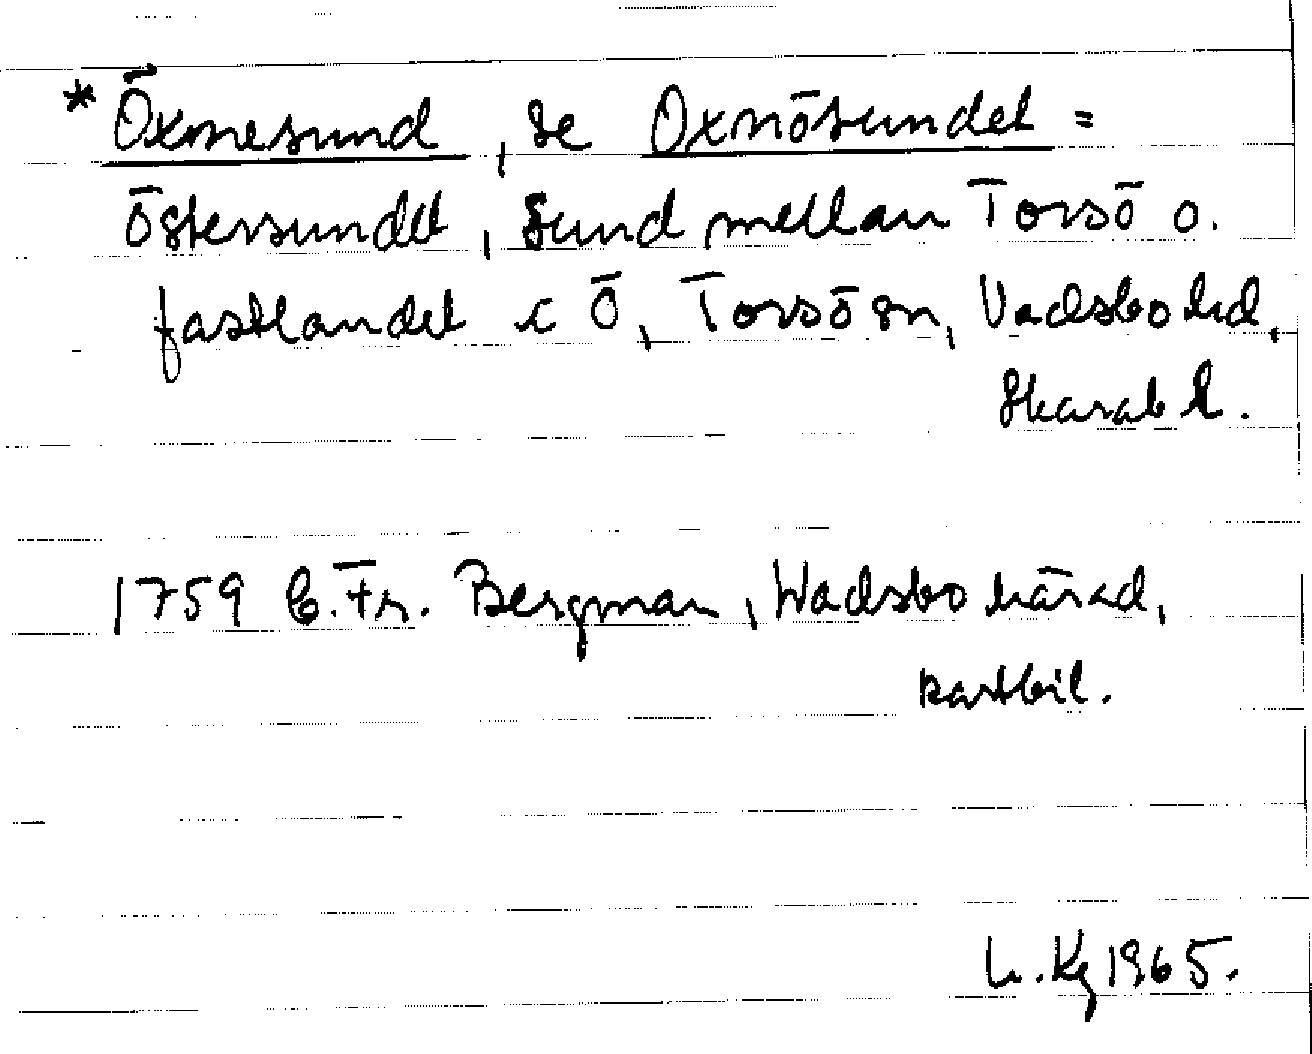 * Öxnesund, se Oxnösundet =
Östersundet, Sund mellan Torsö o.
fastlandet i Ö, Torsö sn, Vadsbo hd.
Skarab l.
1759 C. Fr. Bergman, Wadsbo härad,
kartbil.
L. Kg 1965.